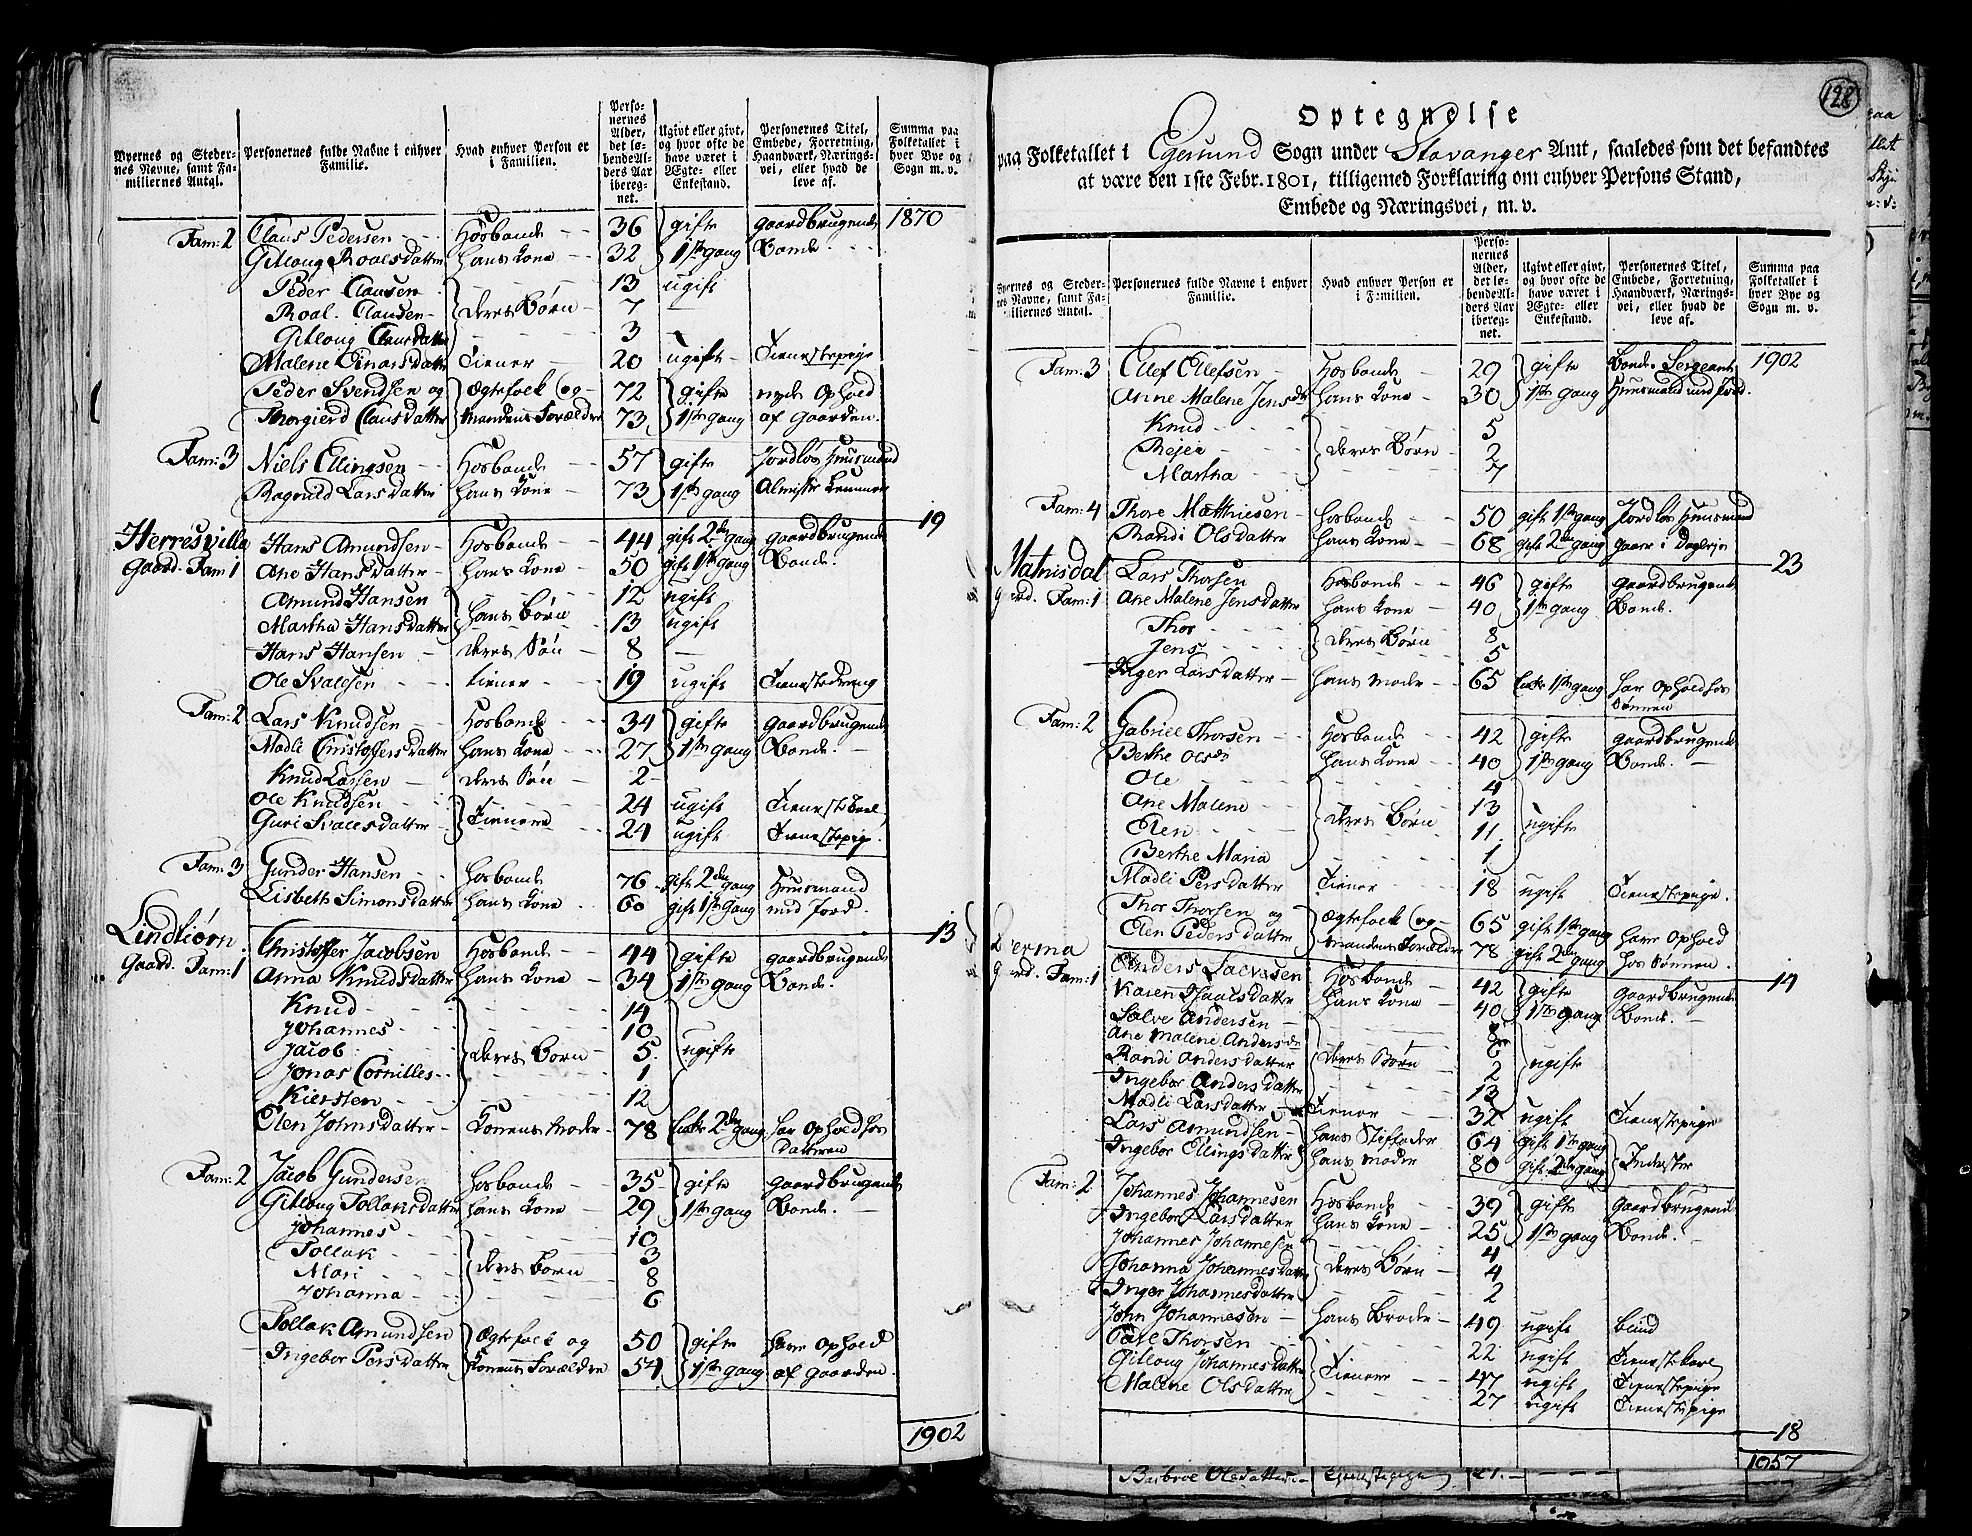 Byernes og Steder- nes Navne, samt Fa- miliernes Antal. | Personernes fulde Navne i enhver Familie. | Hvad enhver Person er i Familien. | Perso- nernes Alder, det lø- bende Al- ders Aar ibereg- net. | Ugivt eller givt, og hvor ofte de have været i Ægte- eller Enkestand. | Personernes Titel, Embede, Forretning, Haandværk, Nærings- vei, eller hvad de leve af. | Summa paa Folketallet i hver Bye og Sogn m. v.
Fam: 2 Claus Pedersen Hosbonde 36 gifte gaardbrugende 1870
Gitloug Roalsdatter Hans Kone 32 1ste gang Bonde
Peder Clausen 13 ugift
Roal Clausen deres Børn 7
Gitloug Clausdatter 3
Malene Einarsdatter Tiener 20 ugift Tienestepige
Peder Svendsen og Ægtefolk og 72 gifte nyde Ophold
Thorgierd Clausdatter Mandens Forældre 73 1ste gang af Gaarden
Fam: 3 Niels Ellingsen Hosbonde 57 gifte Jordløs Huusmand
Ragnild Larsdatter Hans Kone 73 1ste gang Almisse Lemmer
19
Herresvilla Hans Amundsen Hosbonde 44 gift 2den gang gaardbrugende
Gaard. Fam: 1 Ane Hansdatter Hans Kone 50 gift 1ste gang Bonde
Amund Hansen 12 ugift
Martha Hansdatter Hans Børn 13 ugift
Hans Hansen deres Søn 8
Ole Svalesen tiener 19 ugift Tienestedreng
Fam: 2 Lars Knudsen Hosbonde 34 gifte gaardbrugende
Madli Christophersdatter Hans Kone 27 1ste gang Bonde
Knud Larsen deres Søn 2
Ole Knudsen 24 ugift Tienestekarl
Guri Svalesdatter Tienere 24 ugift Tienestepige
Fam: 3 Gunder Hansen Hosbonde 76 gift 2den gang Huusmand
Lisbeth Simonsdatter Hans Kone 60 gift 1ste gang med Jord
13
Lindtiørn Christoffer Jacobsen Hosbonde 44 gifte gaardbrugende
Gaard. Fam: 1 Anna Knudsdatter Hans Kone 34 1ste gang Bonde
Knud 14
Johannes 10
Jacob deres Børn 5 ugifte
Jonas Cornilles 1
Kiersten 12
Elen Johnsdatter Konens Moder 78 Enke 2den gang har Ophold hos
Datteren
Fam: 2 Jacob Gundersen Hosbonde 35 gifte gaardbrugende
Gitloug Tollaksdatter Hans Kone 29 1ste gang Bonde
Johannes 10
Tollak 3
Mari deres Børn 8
Johanna 6
Tollak Amundsen Ægtefolk og 50 gifte have Ophold
Ingebor Persdatter Konens Forældre 54 1ste gang af Gaarden
1902
128
Optegnelse
paa Folketallet i Egersund Sogn under Stavanger Amt, saaledes som det befandtes
at være den 1ste Febr. 1801, tilligemed Forklaring om enhver Persons Stand,
Embede og Næringsvei, m. v.
Byernes og Steder- nes Navne, samt Fa- miliernes Antal. | Personernes fulde Navne i enhver Familie. | Hvad enhver Person er i Familien. | Perso- nernes Alder, det lø- bende Al- ders Aar ibereg- net. | Ugivt eller givt, og hvor ofte de have været i Ægte- eller Enkestand. | Personernes Titel, Embede, Forretning, Haandværk, Nærings- vei, eller hvad de leve af. | Summa paa Folketallet i hver Bye og Sogn m. v.
Fam: 3 Ellef Ellefsen Hosbonde 29 gifte Bonde Sergeant 1902
Anne Malene Jensdr Hans Kone 30 1ste gang Huusmand med Jord
Knud 5
Rejer deres Børn 2
Martha 7
Fam: 4 Thore Matthiesen Hosbonde 50 gift 1ste gang Jordløs Huusmand
Randi Olsdatter Hans Kone 68 gift 2den gang gaaer i Dagleje
23
Matnisdal Lars Thorsen Hosbonde 46 gifte gaardbrugende
Fam: 1 Ane Malene Jensdatter Hans Kone 40 1ste gang Bonde
Thor 8
Jens deres Børn 5
Inger Larsdatter Hans Moder 65 Enke 1ste gang har Ophold hos
Sønnen
Fam: 2 Gabriel Thorsen Hosbonde 42 gifte gaardbrugende
Berthe Olsdr Hans Kone 40 1ste gang Bonde
Ole 4
Ane Malene 13
Elen deres Børn 11 ugifte
Berthe Maria 1
Madli Persdatter Tiener 18 ugift Tienestepige
Thor Thorsen og Ægtefolk og 65 gift 1ste gang have Ophold
Elen Pedersdatter Mandens Forældre 78 gift 2den gang hos Sønnen
14
Fam: 1 Anders Salvesen Hosbonde 42 gifte Gaardbrugende
Karen Isaacsdatter Hans Kone 40 1ste gang Bonde
Salve Andersen 8
Ane Malene Andersdr
Randi Andersdatter deres Børn 2 ugifte
Ingebor Andersdatter 13
Madli Larsdatter Tiener 32 ugift Tienestepige
Lars Amundsen Hans Stiffader 64 gift 1ste gang
Ingebor Ellingsdatter Hans Moder 80 gift 2den gang Inderster
Fam: 2 Johannes Johannesen Hosbonde 39 gifte Gaardbrugende
Ingebor Larsdatter Hans Kone 25 1ste gang Bonde
Johannes Johannesen 4
Johanna Johannesdatter deres Børn 4
Inger Johannesdatter 2
John Johannesen Hans Broder 49 ugift blind
Carl Thorsen 22 ugift Tienestekarl
Gitloug Johannesdatter Tienere 47 ugift Tienestepige
Malene Olsdatter 27 ugift Tienestepige
18
1957
Barbroe Olsdatter Tienestepige 21